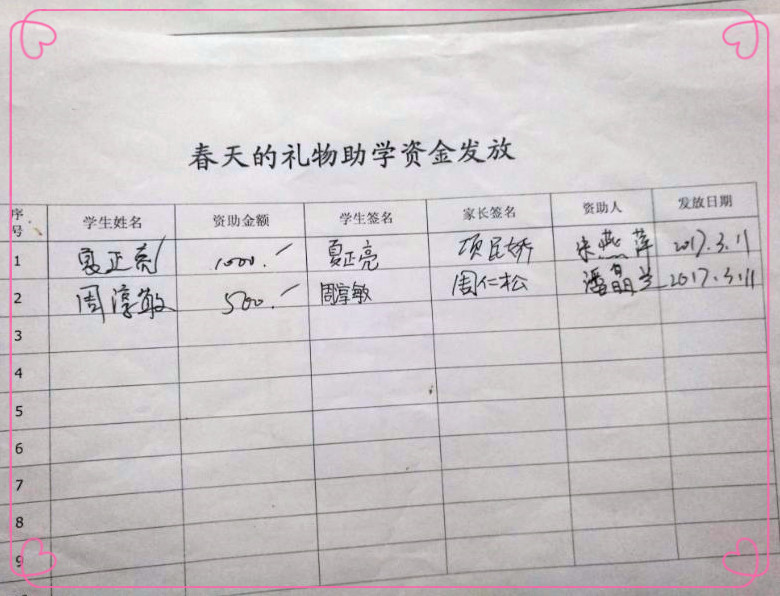 春天的礼物助学资金发放
序号 学生姓名 资助金额 学生签名 家长签名 资助人 发放日期
1 夏正亮 1000.- 夏正亮 项民娇 朱燕萍 2017.3.11
2 周淳敏 500.- 周淳敏 周仁松 潘晶兰 2017.3.11
3
4
5
6
7
8
9